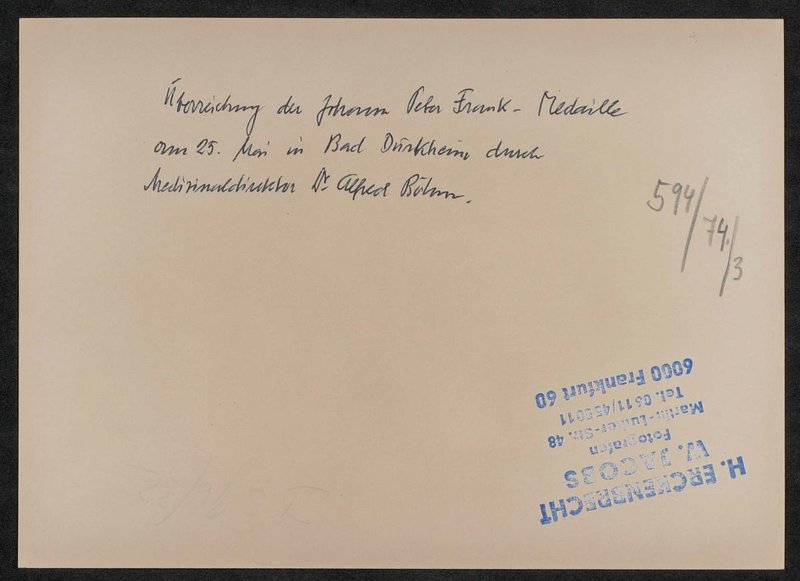 Überreichung der Johann Peter Frank-Medaille
am 25. Mai in Bad Dürkheim durch
Medizinaldirektor Dr Alfred Böhm.
594/74/3
H. ERCKENBRECHT
W. JACOBS
Fotografen
Martin-Luther-Str. 48
Tel. 0611/455011
6000 Frankfurt 60